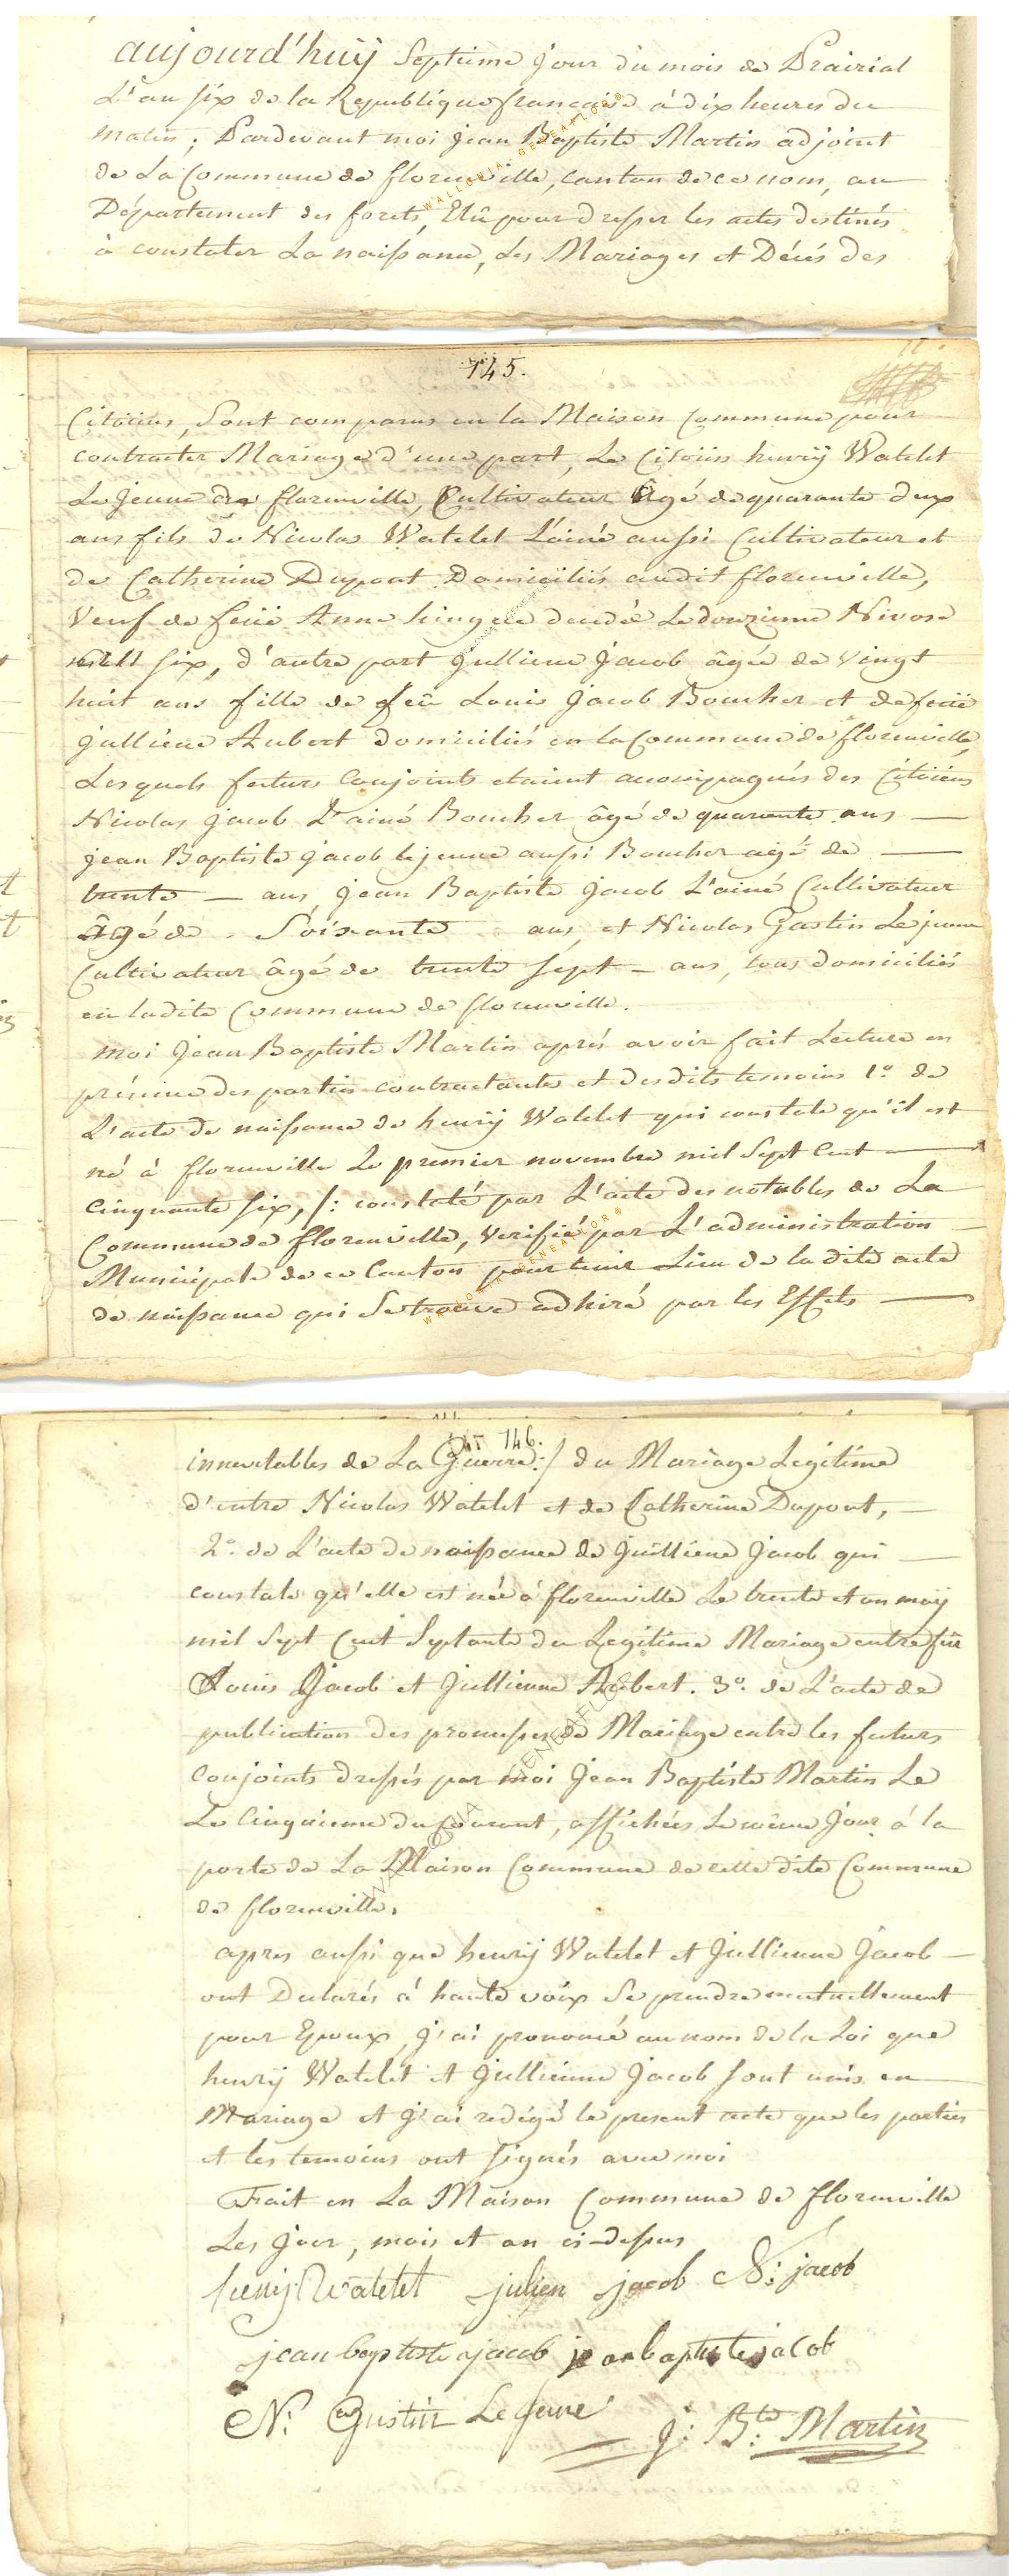 aujourd'huÿ Septieme jour du mois de Prairial
L'an six de la Republique francaise à dix heures du
matin, Pardevant moi jean Baptiste Martin adjoint
de La Commune de florenville, canton de ce nom, au
Département des forets, Elû pour dresser les actes destinés
à constater La naissance, Les Mariages et Décés des
145.
Citoïens, Sont comparus en la Maison Commune pour
contracter Mariage d'une part, Le Citoïen henrÿ Watelet
Le jeune de florenville, Cultivateur Agé de quarante deux
ans fils de Nicolas Watelet L'ainé aussi Cultivateur et
de Catherine Dupont Domiciliés audit florenville,
Veuf de feüe Anne hingue decedé Le douzieme Nivose
six, d'autre part jullienne jacob âgée de vingt
huit ans fille de feü Louis jacob Boucher et de feüe
julliene Aubert domiciliés en la Commune de florenville,
Lesquels futurs Conjoints etaient accompagnés des Citoïens
Nicolas jacob L'ainé Boucher âgé de quarente ans
jean Baptiste jacob lejeune aussi Boucher agé de
trente ans, jean Baptiste jacob L'ainé Cultivateur
Agé de Soixante ans, et Nicolas Gustin Lejeune
Cultivateur âgé de trente sept ans, tous domiciliés
en ladite Commune de florenville.
moi jean Baptiste Martin aprés avoir fait Lecture en
présence des parties contractante et desdits temoins 1° de
L'acte de naissance de henrÿ Watelet qui constate qu'il est
né à florenville Le premier novembre mil Sept Cent
cinquante six, /: constaté par L'acte des notables de La
Commune de florenville, verifié par L'administration
Municipale de ce Canton pour tenir Lieu de la dite acte
de naissance qui Se trouve adhiré par les Effets
146.
innevitables de La Guerre :/ du Mariage Legitime
d'entre Nicolas Watelet et de Catherine Dupont,
2°. de L'acte de naissance de Juilliene jacob qui
constate qu'elle est née à florenville Le trente et un maÿ
mil Sept Cent Septante du Legitime Mariage entre fûe
Louis Jacob et jullienne Aubert. 3°. de L'acte de
publication des promesses de Mariage entre les futurs
Conjoints dressés par moi jean Baptiste Martin Le
Le Cinquieme du Courant, affichées Le même Jour à la
porte de La Maison Commune de cette dite Commune
de florenville,
apres aussi que henrÿ Watelet et jullienne Jacob
ont Declarés à haute voix Se prendre mutuellement
pour Epoux, j'ai prononcé au nom de la Loi que
henrÿ Watelet et jullienne Jacob sont unis en
Mariage et j'ai redigé le present acte que les parties
et les temoins ont signés avec moi
Fait en La Maison Commune de florenville
Les jour, mois et an ci-dessus
henrÿ Watelet julien jacob N: jacob
jean baptiste jacob jean baptiste jacob
N: Gustin Le jeune
J: B:te Martin